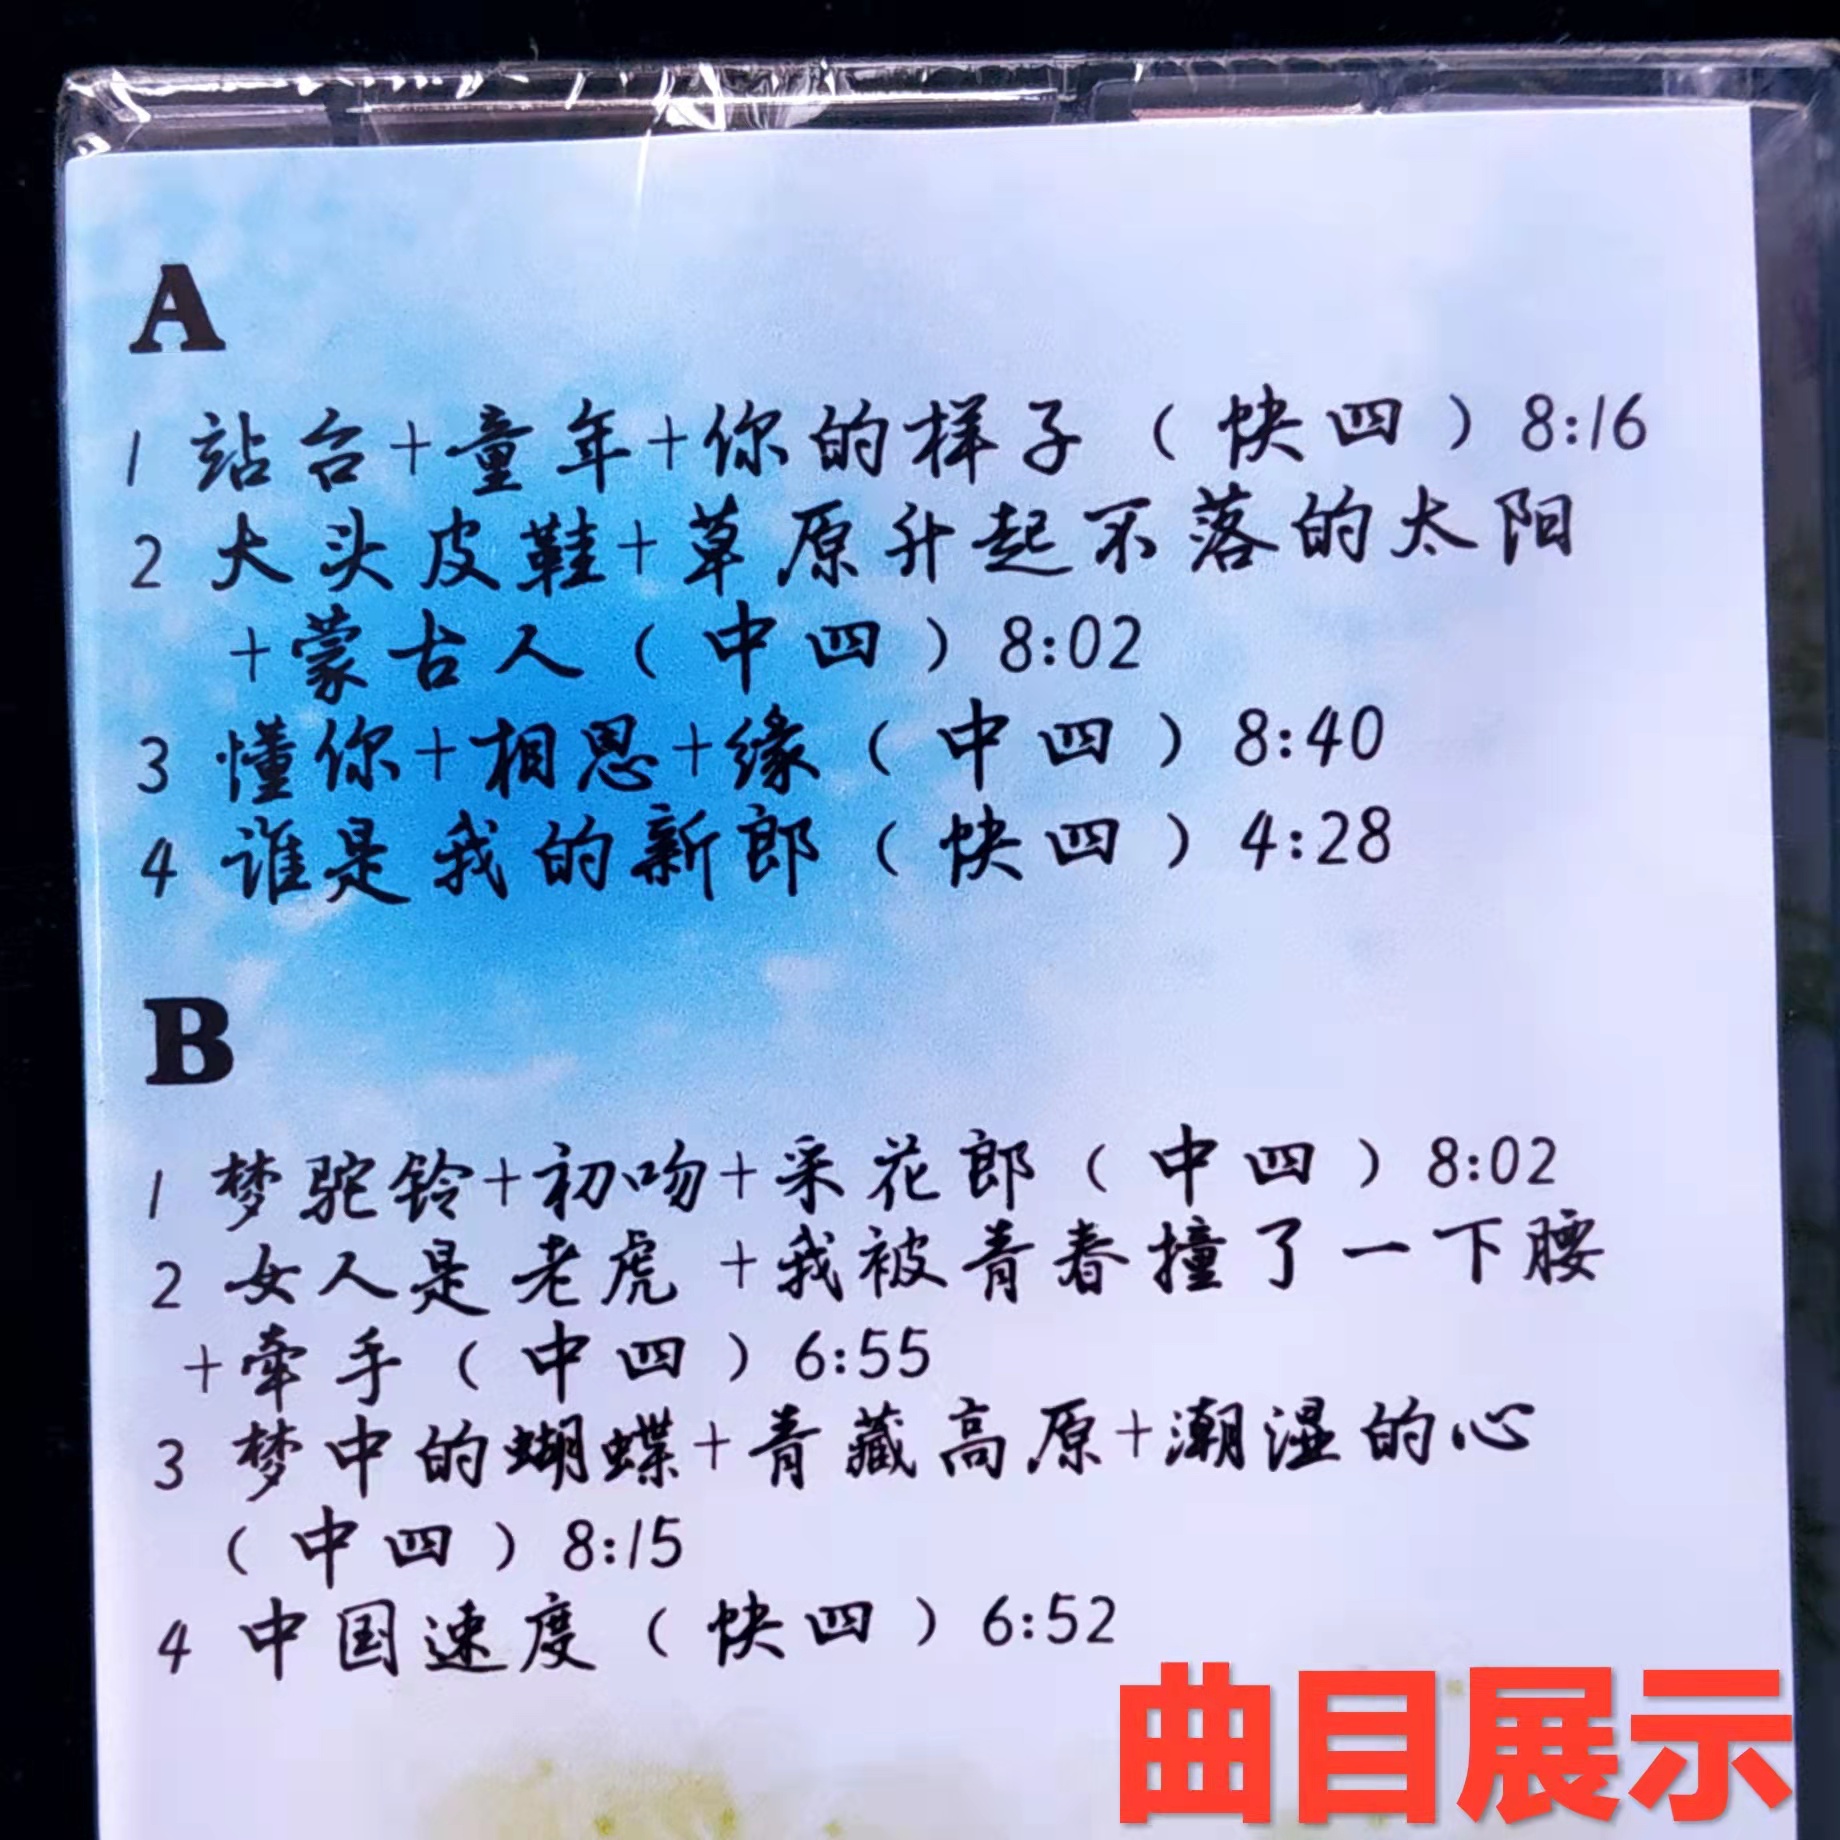 A
1 站台+童年+你的样子（快四）8:16
2 大头皮鞋+草原升起不落的太阳
+蒙古人（中四）8:02
3 懂你+相思+缘（中四）8:40
4 谁是我的新郎（快四）4:28
B
1 梦驼铃+初吻+采花郎（中四）8:02
2 女人是老虎 +我被青春撞了一下腰
+牵手（中四）6:55
3 梦中的蝴蝶+青藏高原+潮湿的心
（中四）8:15
4 中国速度（快四）6:52
曲目展示